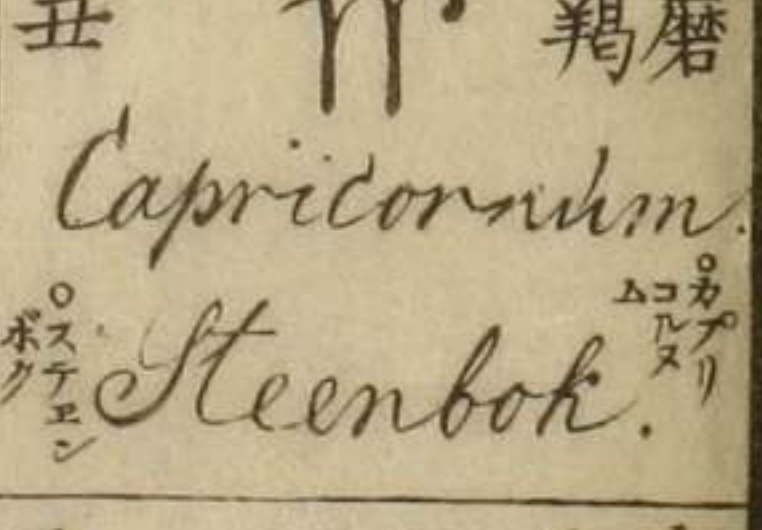 磨羯
丑
Capricornum.
○カプリ
コルヌ
ム
Steenbok.
○ステヱン
ボク